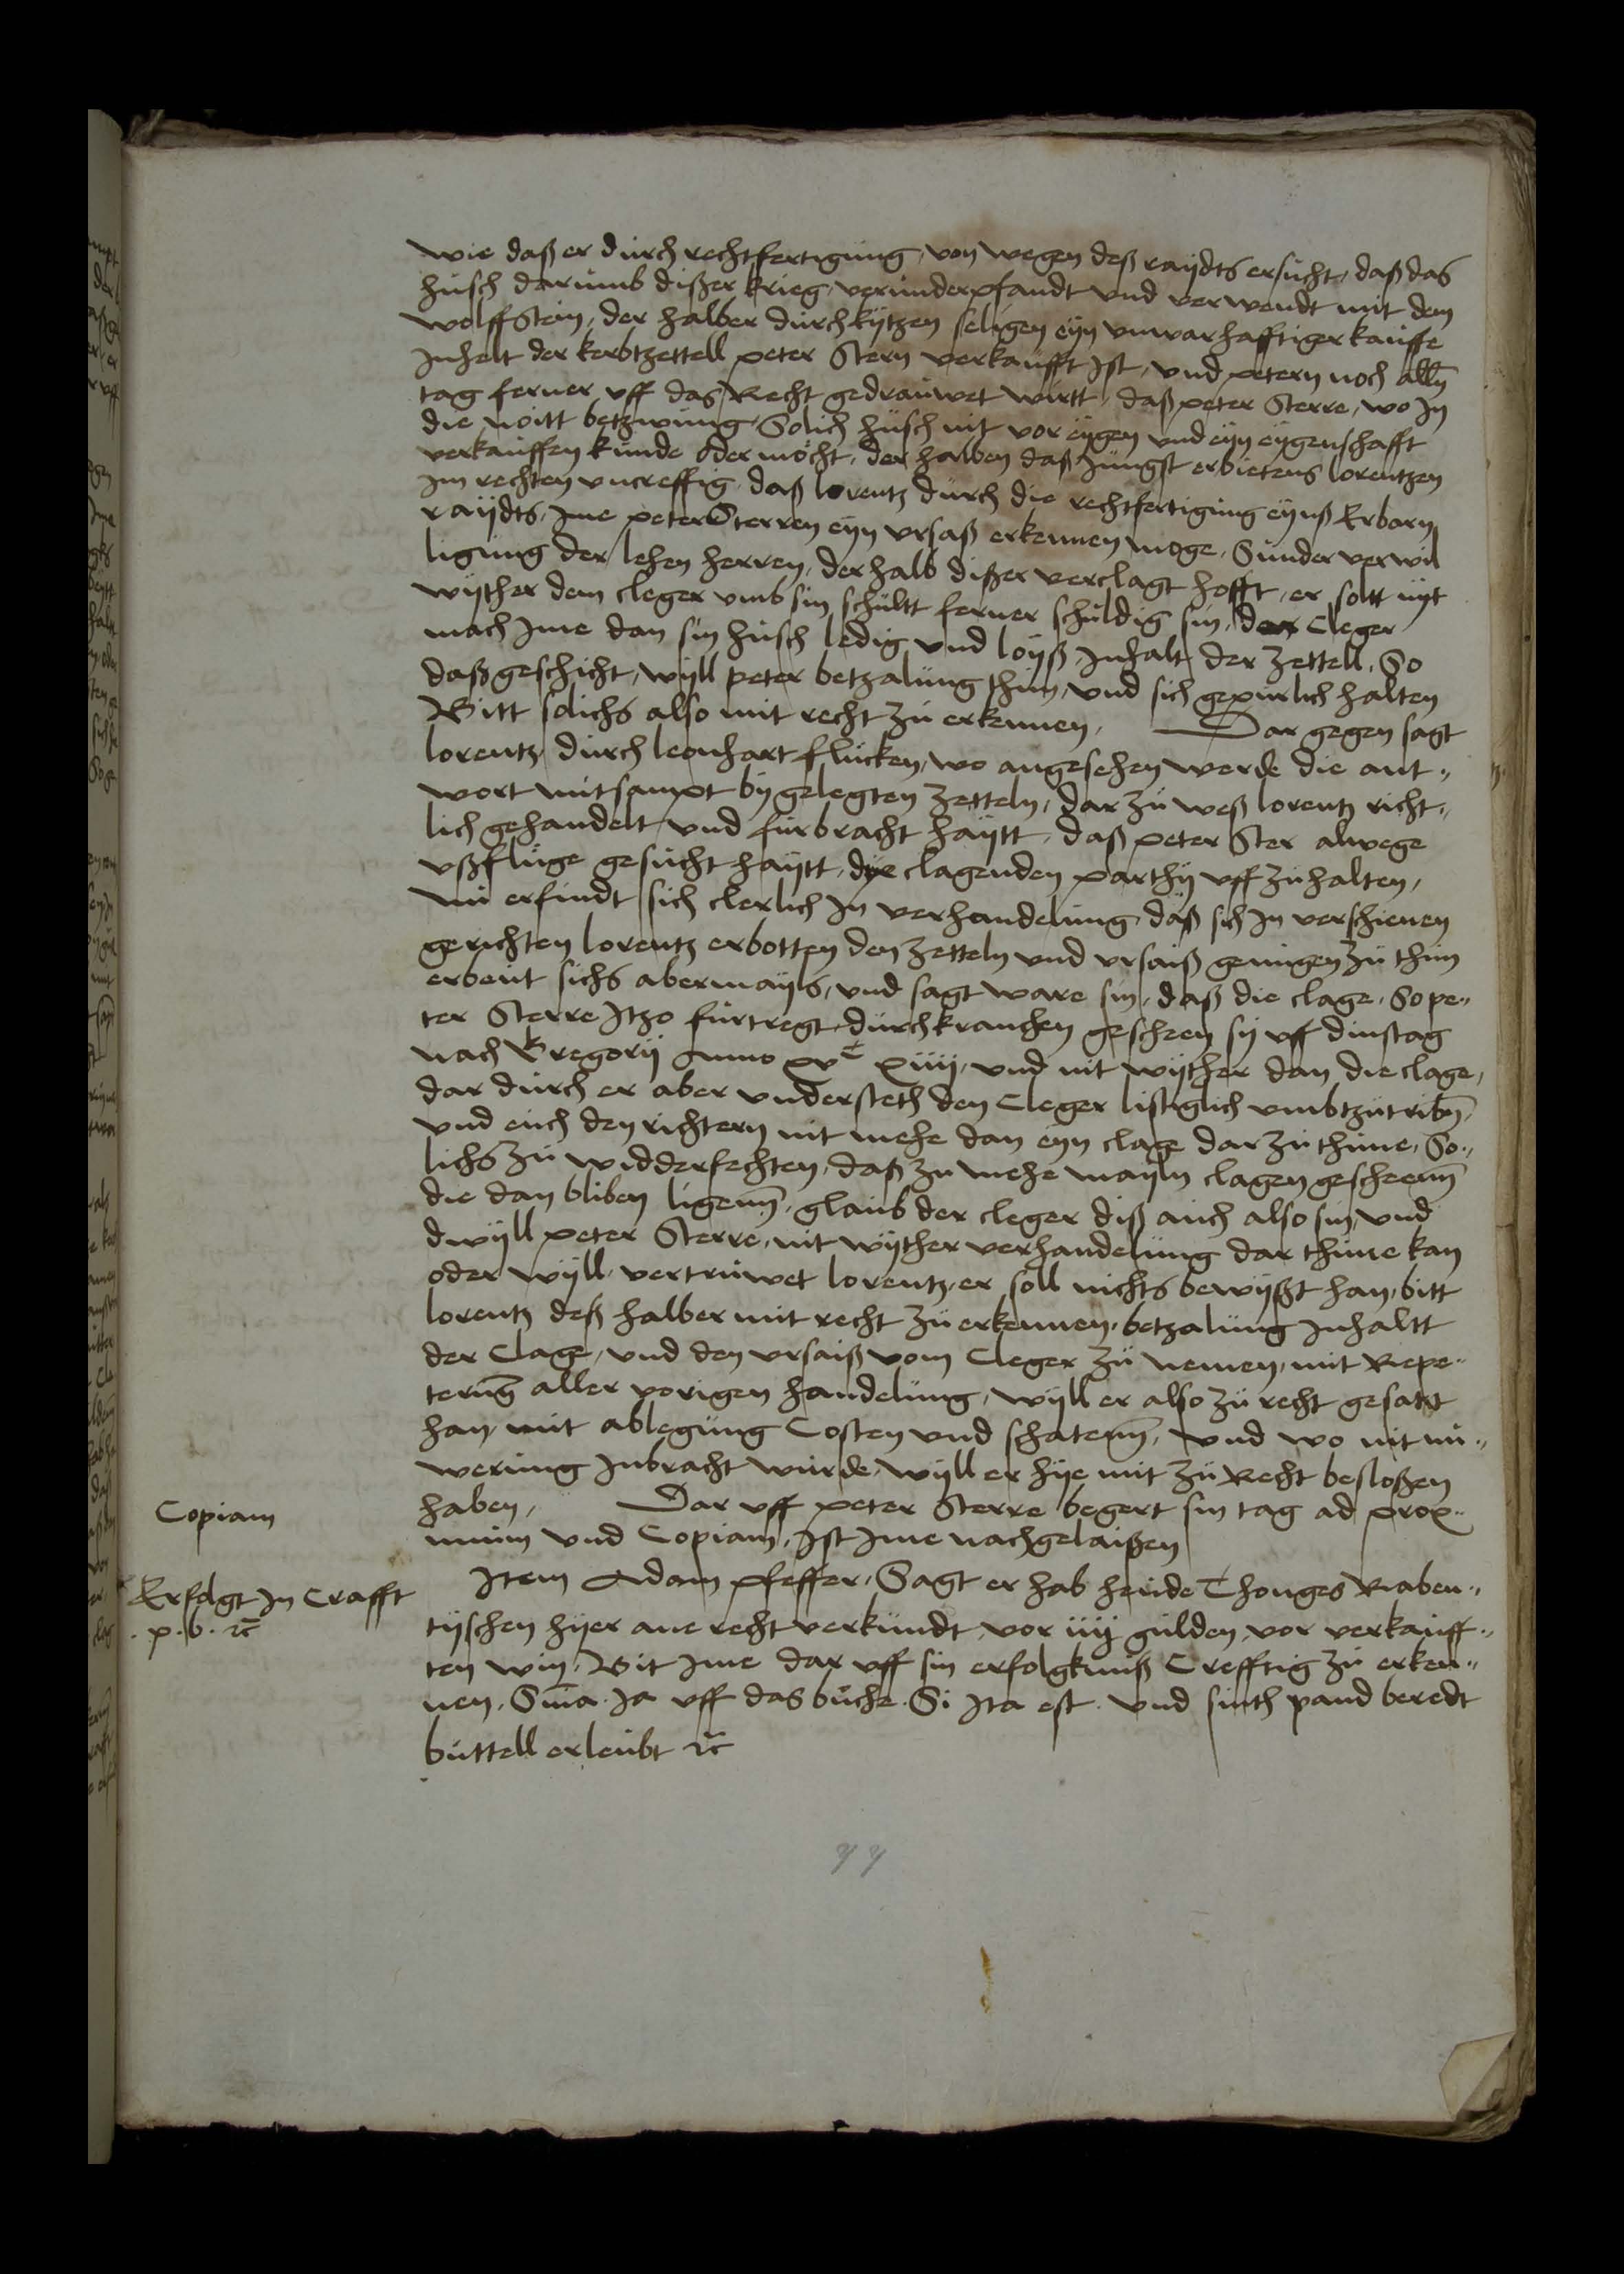 wie daß er durch rechtfertigung, von wegen deß raydts ersucht, daß das
husch darumb dißer krieg, verunderpfandt und verwendt mit dem
wolffstein, der halber durch kytzen seligen eyn unwarhafftiger kauffe
Inhelt der kerbtzettell peter Stern verkaufft Ist, und petern noch alln
tag ferner uff das Recht gedrauwet wirtt, daß peter Sterre, wo In
die noitt betzwung, Solich husch nit vor eygen und eyn eygenschafft
verkauffen kunde oder möcht, der halben daß Jungst erbietens lorentzen
Im rechten uncreffig, daß lorentz durch die rechtfertigung eynß Erbarn
raydts, Ime peter Sterren eyn ursaß erkennen moge, Sunder verwil
ligung der lehen herren, derhalb dißer verclagt hofft, er soltt nyt
wyther dem cleger umb sin schultt ferner schuldig sin, der Cleger
mach Ime dan sin husch ledig und loyß, Inhalt der zettell, So
daß geschicht, wyll peter betzalung thun, und sich gepurlich halten
Bitt solichs also mit recht zu erkennen, Dar gegen sagt
lorentz durch leonhart flucken, wo angesehen werde die ant„
wort mitsampt by gelegten zetteln, dar zu weß lorentz richt„
lich gehandelt und furbracht haytt, daß peter Ster alwege
ußfluge gesucht haytt, dye clagenden parthy uff zu halten,
nu erfindt sich clerlich In verhandelung, daß sich In verschienen
gerichten lorentz erbotten den zetteln und ursaiß genugen zu thun
erbeut sichs abermayls, und sagt ware sin, daß die clage, So pe„
ter Sterre Itzo furtregt, durch kranchen gescheen sy uff dinstag
nach Gregorii Anno xvᶜ xiiii, und nit wyther dan die clage,
dar durch er aber understeth den Cleger listiglich umbtzutribn,
und euch den richtern nit mehe dan eyn clage dar zu thune, So„
lichs zu widderfechten, daß zu mehe mayln clagen gescheenn
die dan bliben ligenn, glaub der cleger diß auch also sin, und
dwyll peter Sterre, nit wyther verhandelung dar thune kan
oder wyll, vertruwet lorentz, er soll nichts bewyßt han, bitt
lorentz deß halber mit recht zu erkennen, betzalung Inhaltt
der Clage, und den ursaiß vom Cleger zu nemen, mit Repe„
terung aller vorigen handelung, wyll er also zu recht gesatzt
han, mit ablegung Costen und schatenn, und wo nit nu„
werung Inbracht wurde, wyll er hye mit zu Recht besloßen
haben, Dar uff peter Sterre begert sin tag ad prox„
mum und Copiam, Ist Ime nachgelaißen
Copiam
Item Adam pfeffer, Sagt er hab heude Thonges Raben„
tyschen hyer ane recht verkundt, vor iiij gulden, vor verkauff„
ten win, Bit Ime dar uff sin erfolgkniß Crefftig zu erken„
nen. Snia. Ja uff das buche. Si Ita est. und sinth pand beredt
buttell erleubt ꝛc
Erfolgt In Crafft
. p. b. ꝛc